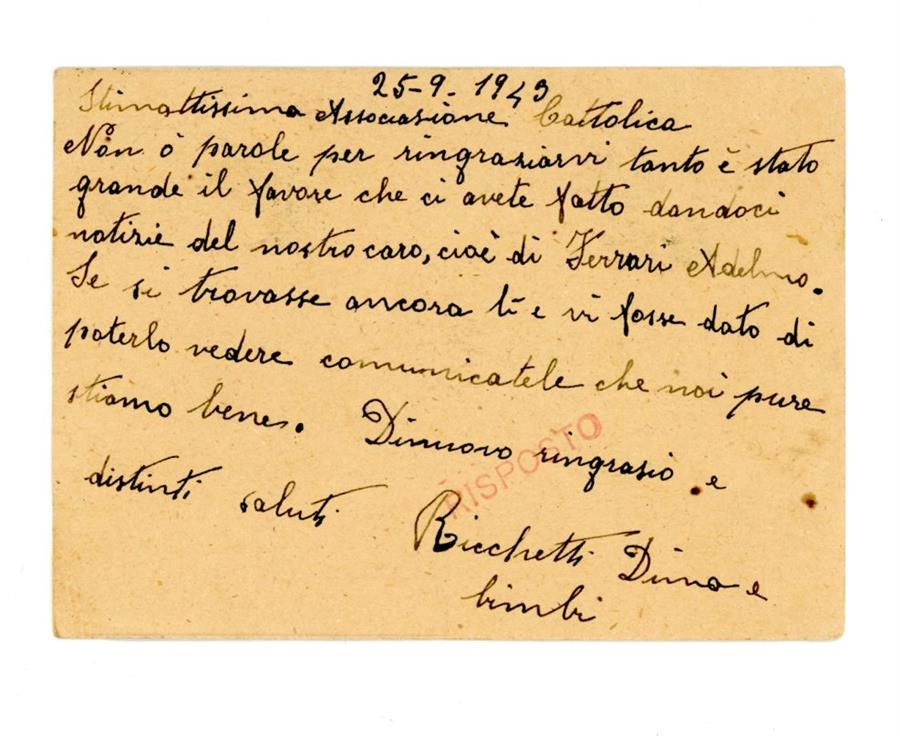 25-9-1943
Stimattissima Associasione Cattolica
Non ò parole per ringrasiarvi tanto è stato
grande il favore che ci avete fatto dandoci
notizie del nostro caro, cioè di Ferrari Adelmo.
Se si trovasse ancora lì e vi fosse dato di
poterlo vedere comunicatele che noi pure
stiamo bene. Dinuovo ringrasio e
distinti saluti
RISPOSTO
Ricchetti Dima e
bimbi